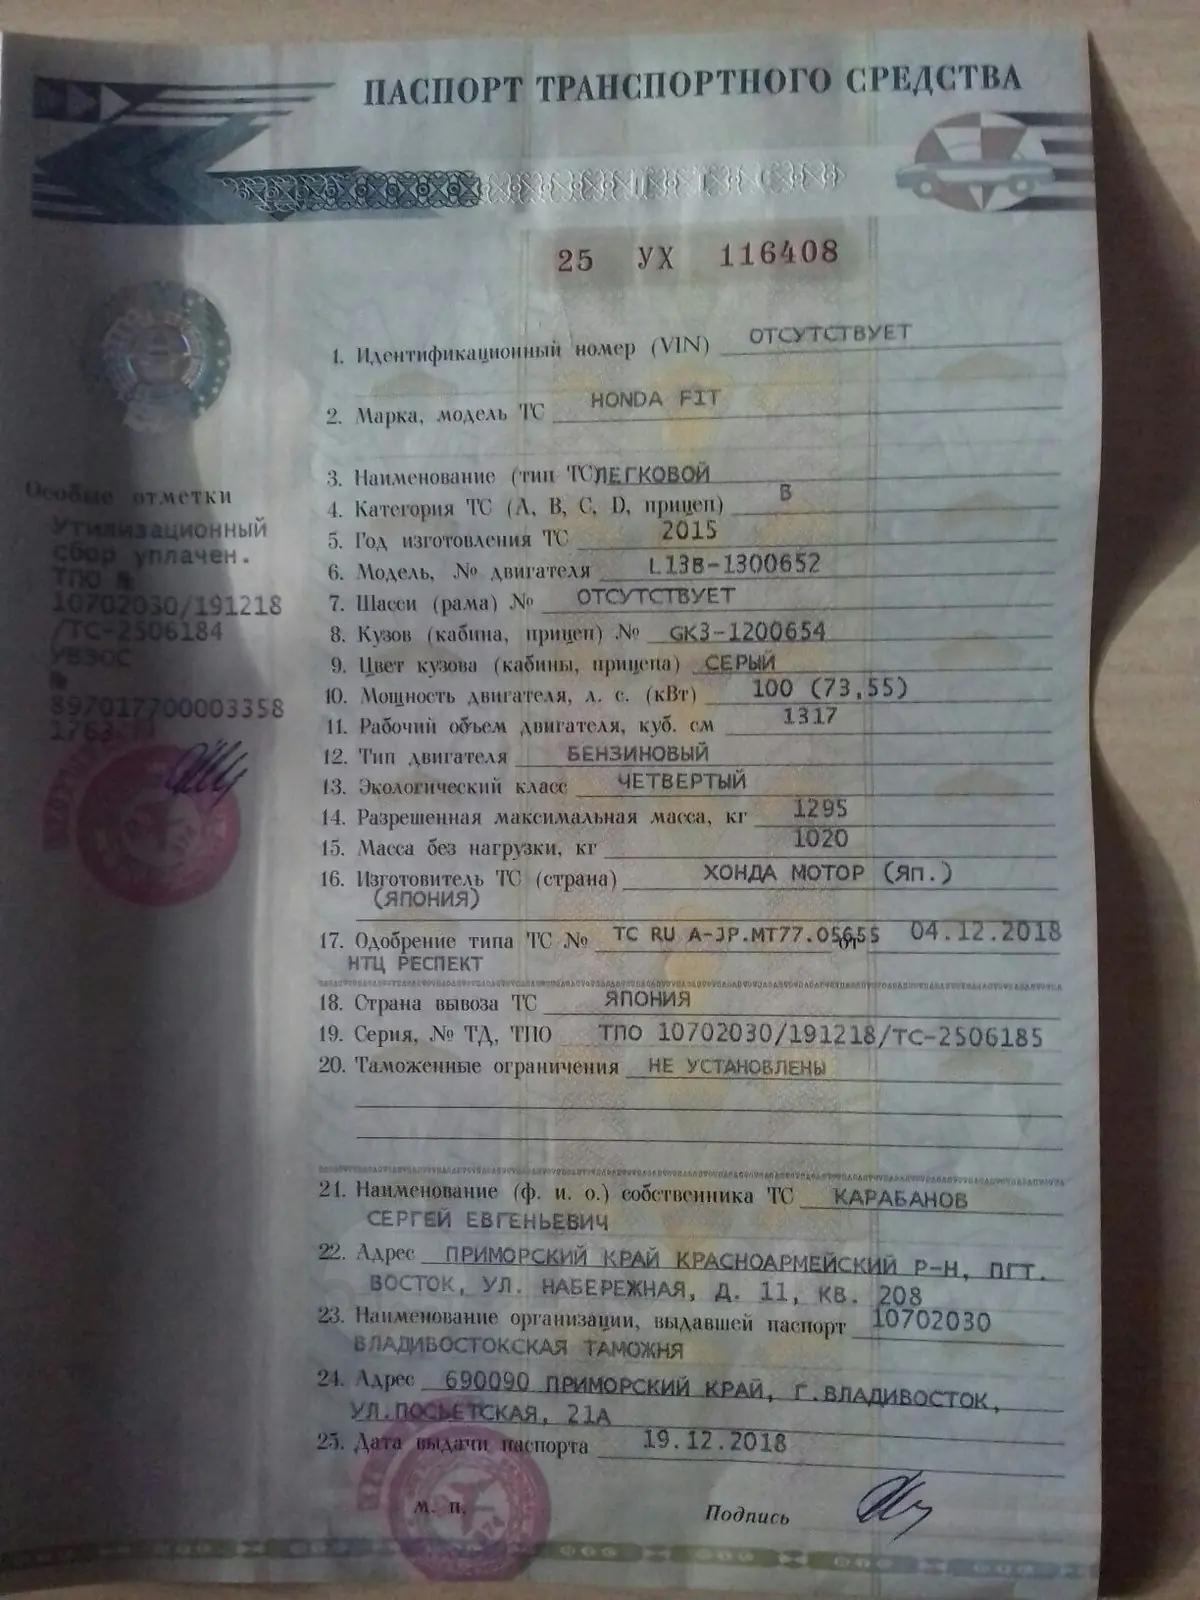 ПАСПОРТ ТРАНСПОРТНОГО СРЕДСТВА
25 УХ 116408
1. Идентификационный номер (VIN) ОТСУТСТВУЕТ
2. Марка, модель ТС HONDA FIT
3. Наименование (тип ТС ЛЕГКОВОЙ
4. Категория ТС (A, B, C, D, прицеп) B
5. Год изготовления ТС 2015
6. Модель, № двигателя L13B-1300652
7. Шасси (рама) № ОТСУТСТВУЕТ
8. Кузов (кабина, прицеп) № GK3-1200654
9. Цвет кузова (кабины, прицепа) СЕРЫЙ
10. Мощность двигателя, л. с. (кВт) 100 (73,55)
11. Рабочий объем двигателя, куб. см 1317
12. Тип двигателя БЕНЗИНОВЫЙ
13. Экологический класс ЧЕТВЕРТЫЙ
14. Разрешенная максимальная масса, кг 1295
15. Масса без нагрузки, кг 1020
16. Изготовитель ТС (страна) ХОНДА МОТОР (Яп.)
(ЯПОНИЯ)
17. Одобрение типа ТС № ТС RU A-JP.МТ77.05655 от 04.12.2018
НТЦ РЕСПЕКТ
18. Страна вывоза ТС ЯПОНИЯ
19. Серия, № ТД, ТПО ТПО 10702030/191218/ТС-2506185
20. Таможенные ограничения НЕ УСТАНОВЛЕНЫ
21. Наименование (ф. и. о.) собственника ТС КАРАБАНОВ
СЕРГЕЙ ЕВГЕНЬЕВИЧ
22. Адрес ПРИМОРСКИЙ КРАЙ КРАСНОАРМЕЙСКИЙ Р-Н, ПГТ.
ВОСТОК, УЛ. НАБЕРЕЖНАЯ, Д. 11, КВ. 208
23. Наименование организации, выдавшей паспорт 10702030
ВЛАДИВОСТОКСКАЯ ТАМОЖНЯ
24. Адрес 690090 ПРИМОРСКИЙ КРАЙ, Г.ВЛАДИВОСТОК,
УЛ.ПОСЬЕТСКАЯ, 21А
25. Дата выдачи паспорта 19.12.2018
М. П. Подпись
Особые отметки
Утилизационный
сбор уплачен.
ТПО №
10702030/191218
/ТС-2506184
УВЭОС
№
897017700003358